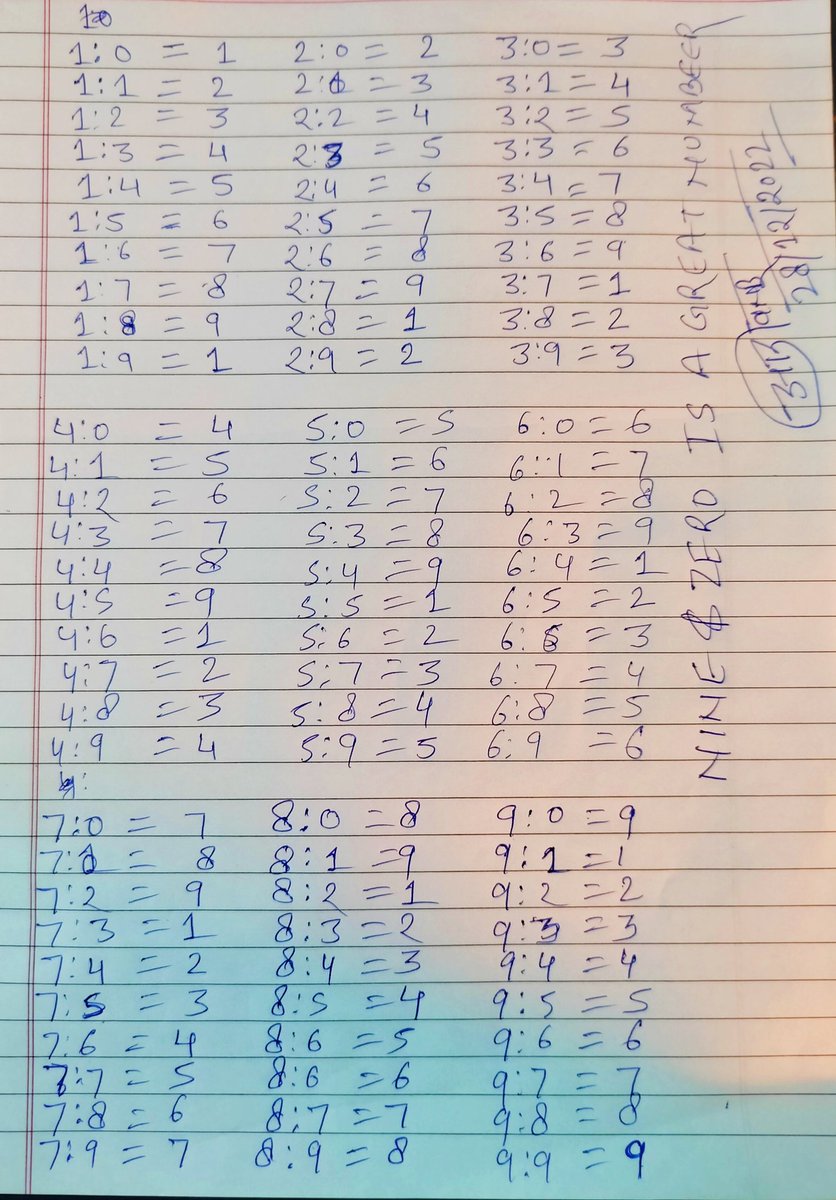 1:0 = 1 2:0 = 2 3:0 = 3
1:1 = 2 2:1 = 3 3:1 = 4
1:2 = 3 2:2 = 4 3:2 = 5
1:3 = 4 2:3 = 5 3:3 = 6
1:4 = 5 2:4 = 6 3:4 = 7
1:5 = 6 2:5 = 7 3:5 = 8
1:6 = 7 2:6 = 8 3:6 = 9
1:7 = 8 2:7 = 9 3:7 = 1
1:8 = 9 2:8 = 1 3:8 = 2
1:9 = 1 2:9 = 2 3:9 = 3
4:0 = 4 5:0 = 5 6:0 = 6
4:1 = 5 5:1 = 6 6:1 = 7
4:2 = 6 5:2 = 7 6:2 = 8
4:3 = 7 5:3 = 8 6:3 = 9
4:4 = 8 5:4 = 9 6:4 = 1
4:5 = 9 5:5 = 1 6:5 = 2
4:6 = 1 5:6 = 2 6:6 = 3
4:7 = 2 5:7 = 3 6:7 = 4
4:8 = 3 5:8 = 4 6:8 = 5
4:9 = 4 5:9 = 5 6:9 = 6
7:0 = 7 8:0 = 8 9:0 = 9
7:1 = 8 8:1 = 9 9:1 = 1
7:2 = 9 8:2 = 1 9:2 = 2
7:3 = 1 8:3 = 2 9:3 = 3
7:4 = 2 8:4 = 3 9:4 = 4
7:5 = 3 8:5 = 4 9:5 = 5
7:6 = 4 8:6 = 5 9:6 = 6
7:7 = 5 8:6 = 6 9:7 = 7
7:8 = 6 8:7 = 7 9:8 = 8
7:9 = 7 8:9 = 8 9:9 = 9
NINE & ZERO IS A GREAT NUMBEER
28/12/2022